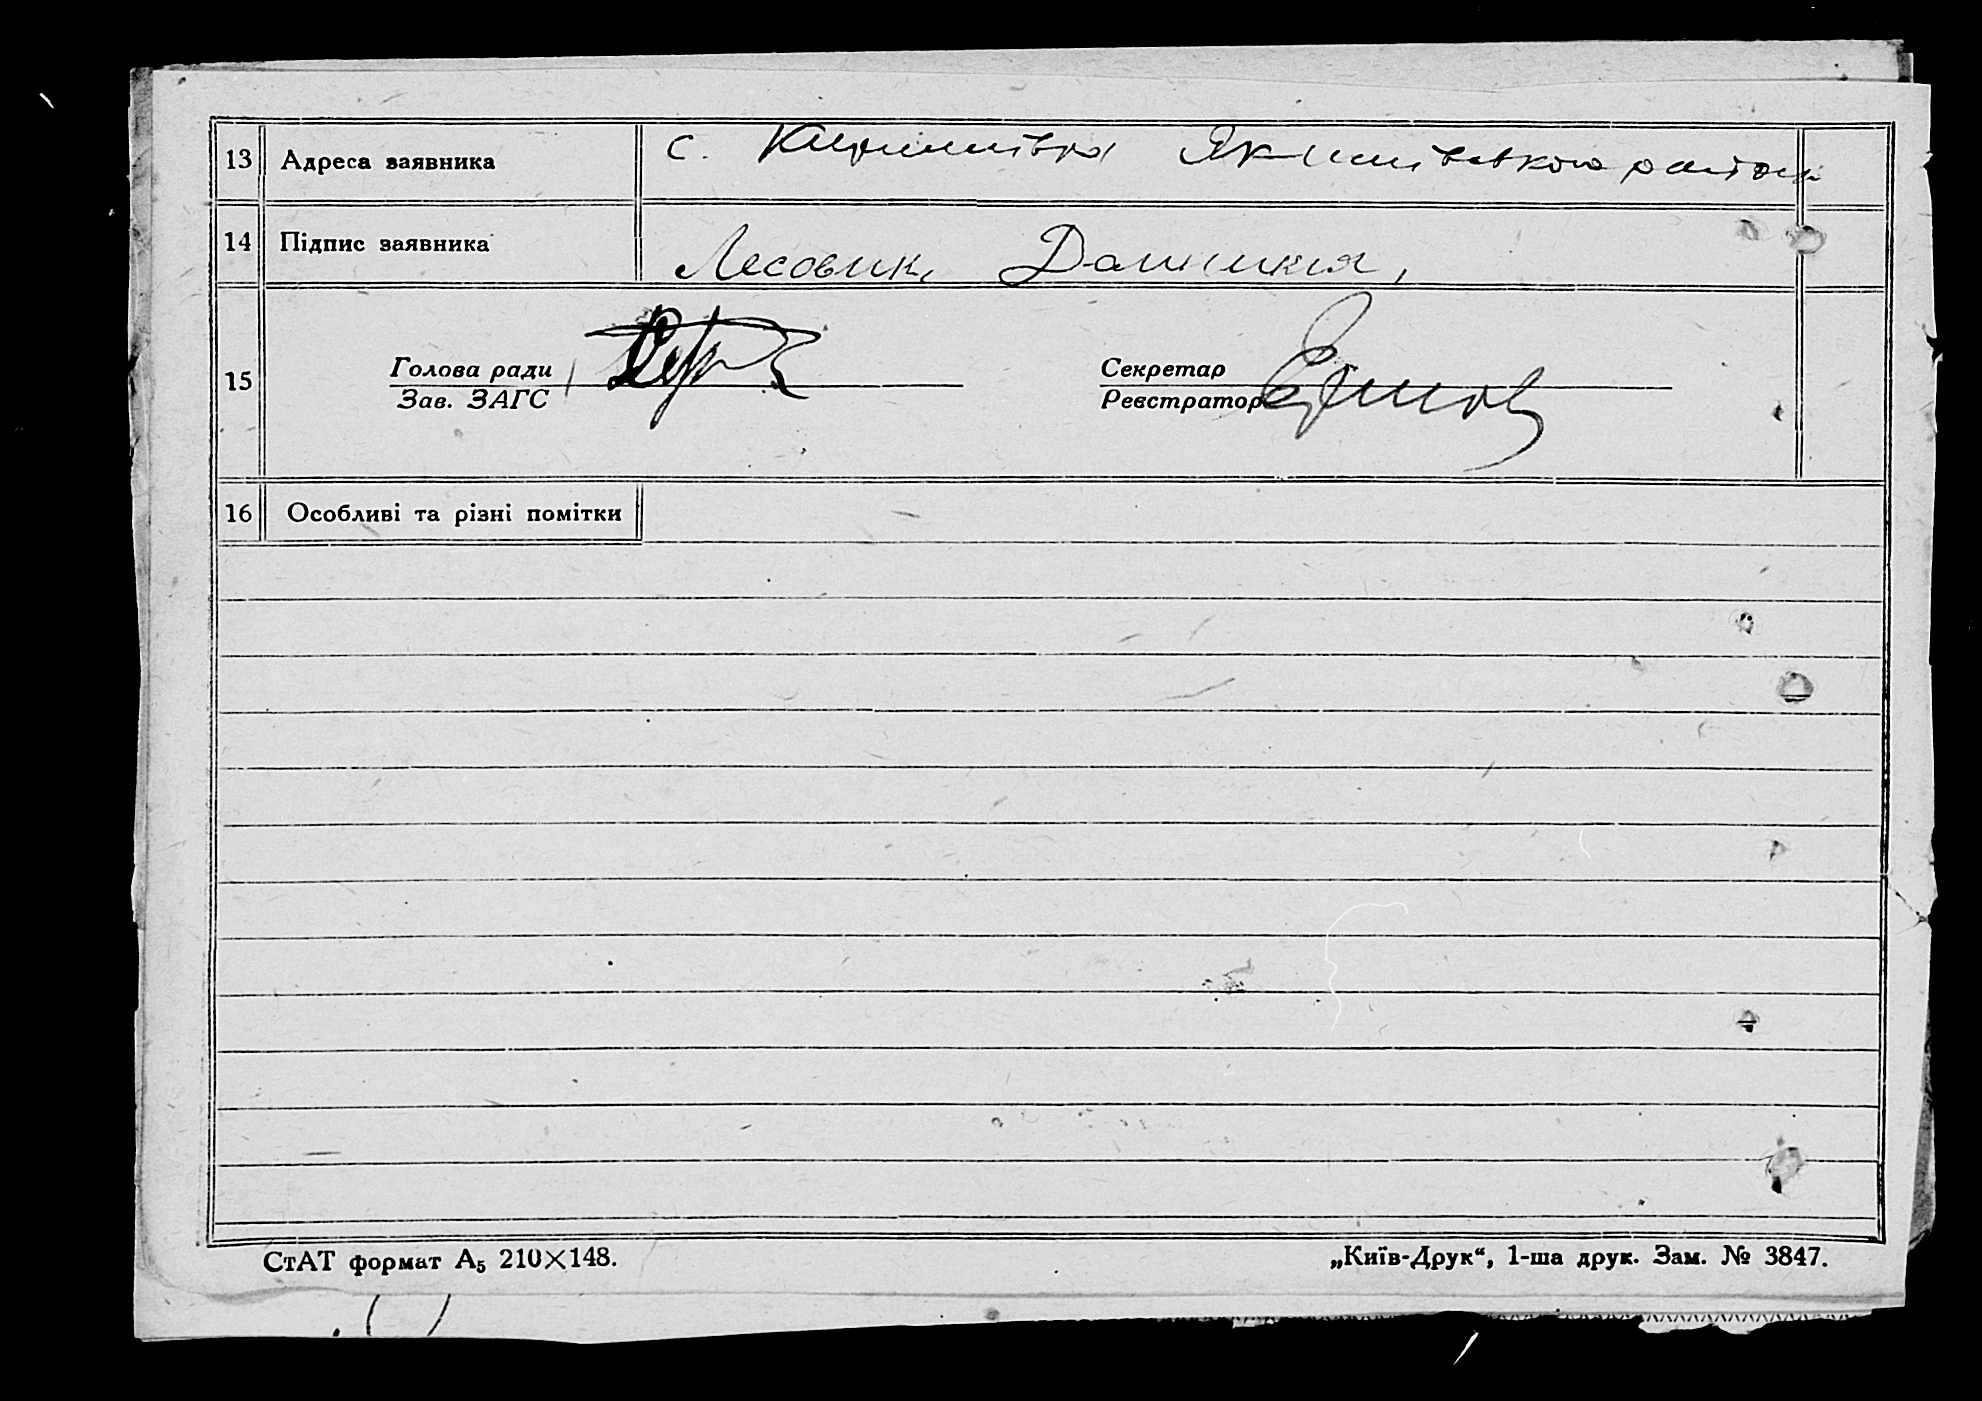 13 Адреса заявника с. Кирилівка Якимівського району
14 Підпис заявника Лесовик,
15 Голова ради
Зав. ЗАГС
Секретар
Реєстратор
16 Особливі та різні помітки
СтАТ формат А₅ 210×148.
„Київ-Друк“, 1-ша друк. Зам. № 3847.